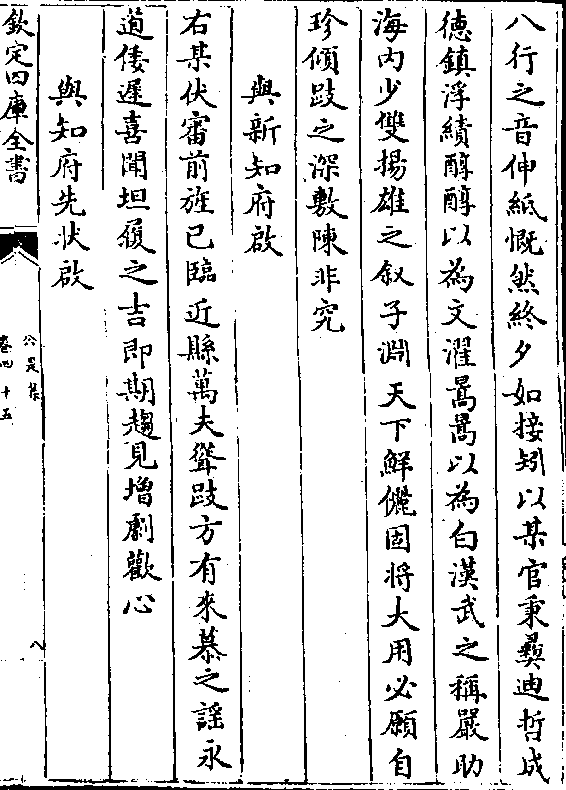 八行之音伸紙慨然終夕如接矧以某官秉彞迪哲成
德鎮浮績醇醇以為文濯暠暠以為白漢武之稱嚴助
海内少雙揚雄之叙子淵天下鮮儷固将大用必願自
珍傾跂之深敷陳非究
與新知府啟
右某伏審前旌已臨近縣萬夫聳跂方有來慕之謡永
道倭遲喜聞坦履之吉即期趨見增劇歡心
與知府先狀啟
欽定四庫全書
公是集
卷四十五
八